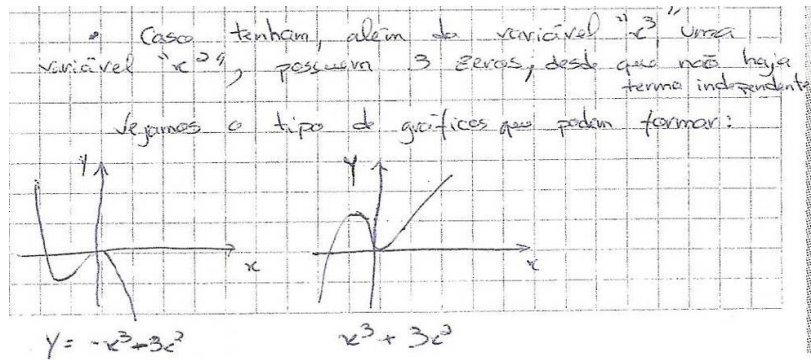 • Caso tenham, além da variável "x³" uma
variável "x²", possuem 3 zeros, desde que não haja
termo independente
Vejamos o tipo de gráficos que podem formar:
Y Y
x x
Y = -x³+3x² x³ + 3x²